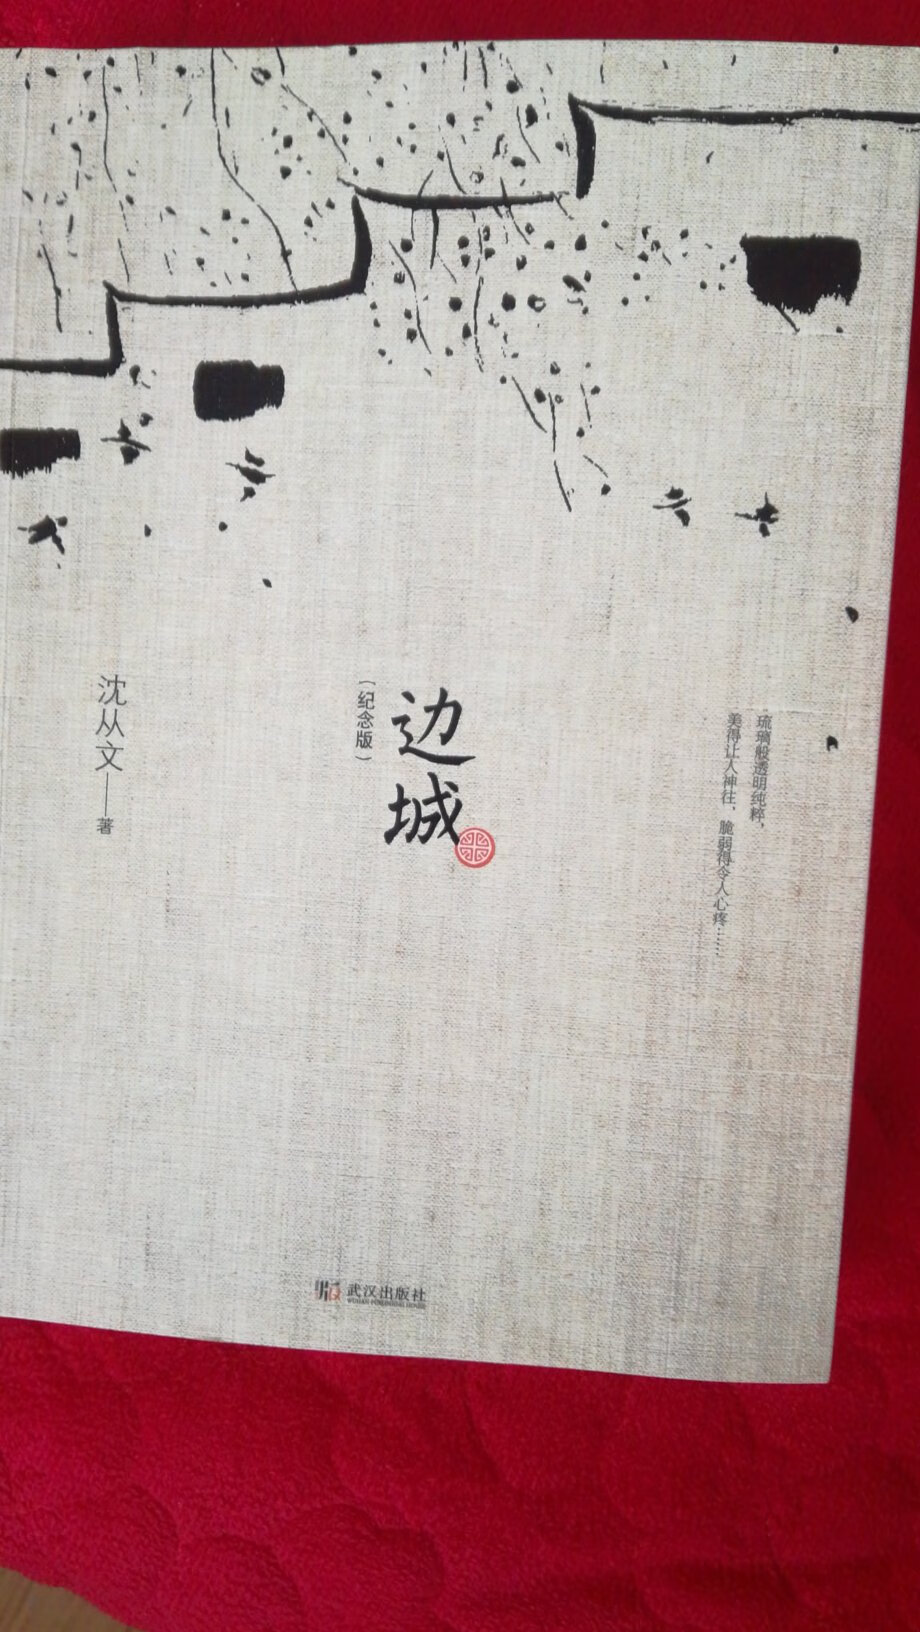 琉璃般透明纯粹，
美得让人神往，脆弱得令人心疼……
边城
（纪念版）
沈从文——著
武汉出版社
WUHAN PUBLISHING HOUSE